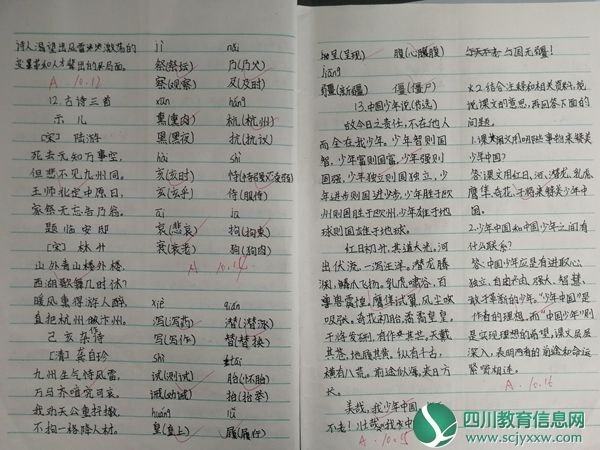 诗人渴望出风雷激荡的
变革和人才辈出的局面。
A. 10.12
12.古诗三首
示儿
[宋] 陆游
死去元知万事空,
但悲不见九州同。
王师北定中原日,
家祭无忘告乃翁。
题临安邸
[宋] 林升
山外青山楼外楼,
西湖歌舞几时休?
暖风熏得游人醉,
直把杭州作汴州。
己亥杂诗
[清] 龚自珍
九州生气恃风雷,
万马齐喑究可哀。
我劝天公重抖擞,
不拘一格降人材。
jì nǎi
祭(祭坛) 乃(乃父)
察(观察) 及(及时)
xūn háng
熏(熏肉) 杭(杭州)
黑(黑夜) 抗(抗议)
hài shì
亥(亥时)
玄(玄乎) 侍(服侍)
āi jū
哀(悲哀) 拘(拘束)
衰(衰老) 狗(狗肉)
A. 10.14
xiè qián
泻 潜(潜涨)
写(写作) 替(替换)
shì tāi
试(测试) 胎(怀胎)
诫(劝诫) 抬(抬举)
huáng lǚ
皇(皇上) 履(履行)
呈(呈现) 腹(心腹)
jiāng
疆(新疆) 僵(僵尸)
13.少年中国说(节选)
故今日之责任,不在他人
而全在我少年。少年智则国
智,少年富则国富,少年强则
国强,少年独立则国独立,少
年进步则国进步,少年胜于欧
洲则国胜于欧洲,少年雄于地
球则国雄于地球。
红日初升,其道大光。河
出伏流,一泻汪洋。潜龙腾
渊,鳞爪飞扬。乳虎啸谷,百
兽震惶。鹰隼试翼,风尘吸
吸张。奇花初胎,矞矞皇皇。
干将发硎,有作其芒。天戴
其苍,地履其黄。纵有千古,
横有八荒。前途似海,来日方
长。
美哉,我少年中国,
不老!壮哉,我中
A. 10.15
与天不老 与国无疆!
2.结合注释和相关资料,说
说课文的意思,再回答下面的
问题。
1.课文用哪些事物来赞美
少年中国?
答:课文用红日、河、潜龙、乳虎、
鹰隼、奇花、干将来赞美少年中
国。
2.少年中国和中国少年之间有
什么联系?
答:中国少年应是有进取心、
独立、自由、强大、智慧、
敢于革新的少年。“少年中国”是
作者的理想,而“中国少年”则
是实现理想的希望,课文层层
深入,表明两者的前途和命运
紧密相连。
A. 10.16
四川教育信息网
www.scjyxxw.com